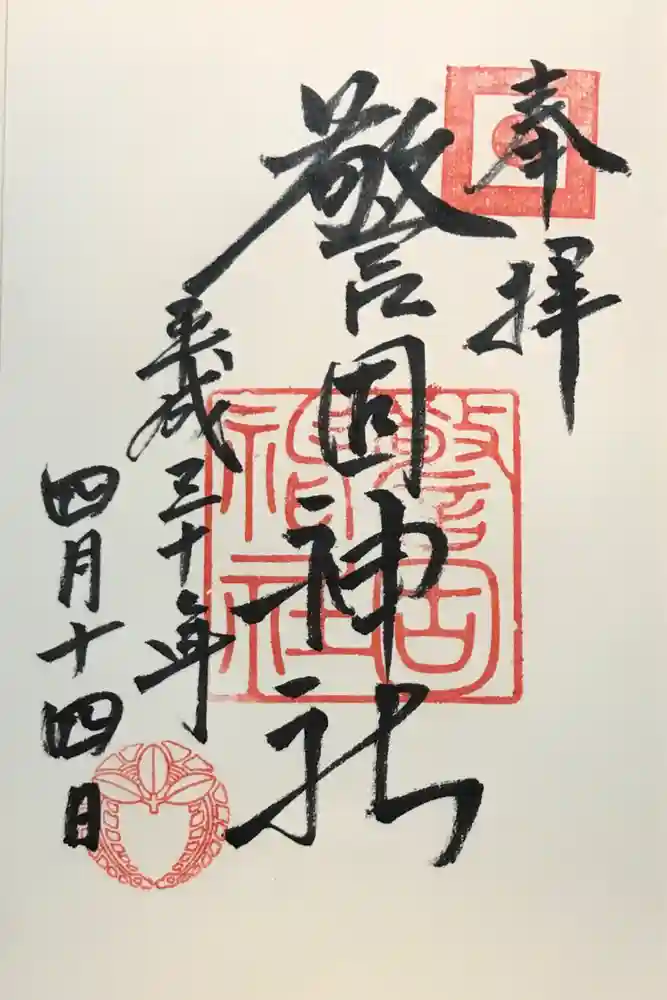 奉拝
警固神社
警固
神社
平成三十年
四月十四日